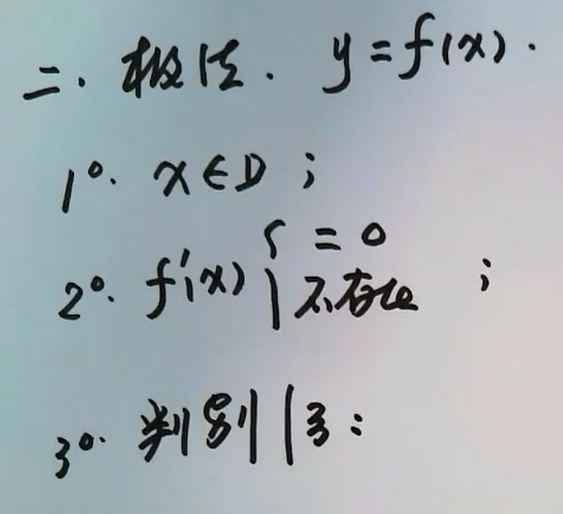 二. 极值. y=f(x).
1°. x∈D;
2°. f'(x) { =0
不存在 ;
3°. 判别